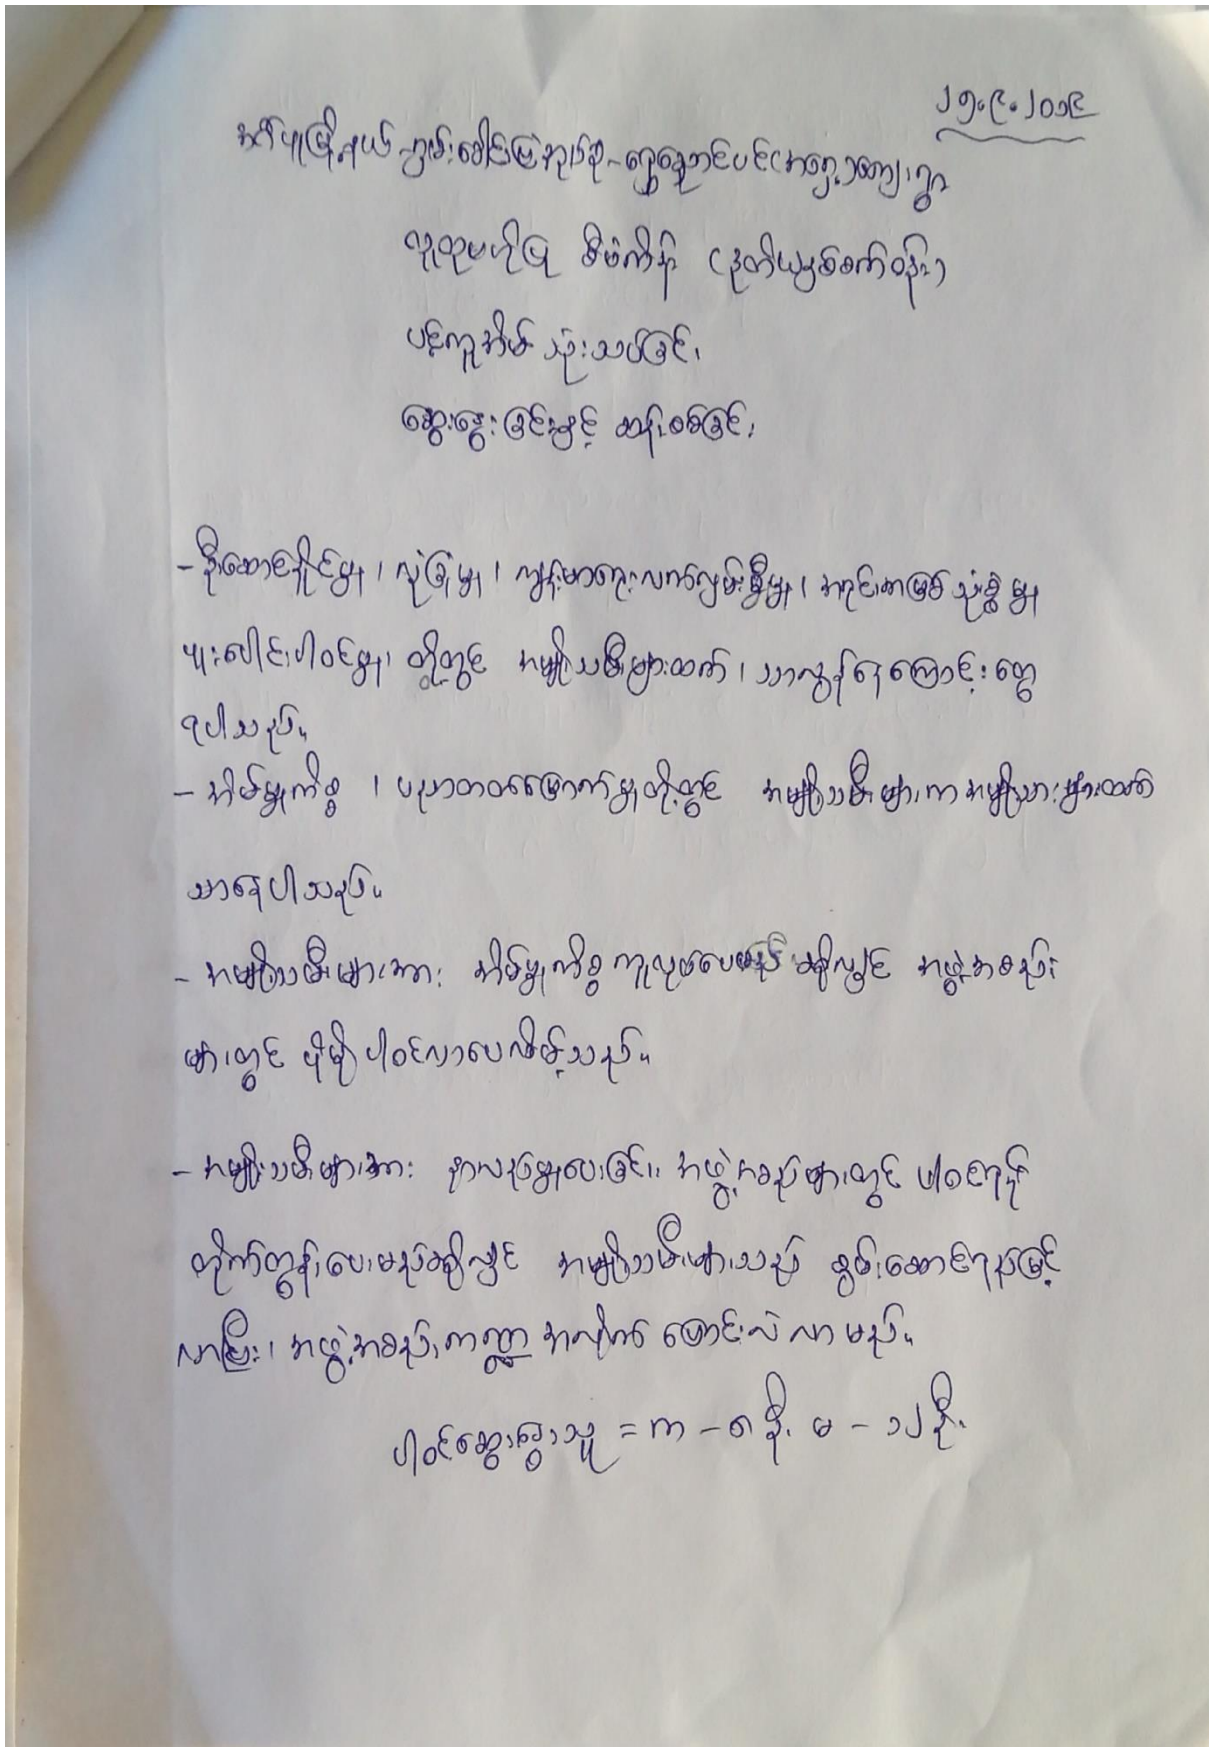 ၂၅.၉.၂၀၁၉
အင်္ဂပူမြို့နယ် ကွမ်းခေါင်းမြဲအုပ်စု - ရွှေညောင်ပင်(အရှေ့)ကျေးရွာ
လူထုဗဟိုပြု စီမံကိန်း (ဒုတိယနှစ်စက်ဝန်း)
ပင့်ကူအိမ် သုံးသပ်ခြင်း
ဆွေးနွေးခြင်းနှင့် ဆန်းစစ်ခြင်း
- ဦးဆောင်နိုင်မှု၊ လုံခြုံမှု၊ ကျန်းမာရေးလက်လှမ်းမှီမှု၊ အရင်းအမြစ်သုံးစွဲမှု
ပူးပေါင်းပါဝင်မှု၊ တို့တွင် အမျိုးသမီးများထက်၊ သာလွန်နေကြောင်းတွေ့
ရပါသည်။
- အိမ်မှုကိစ္စ ၊ ပညာတတ်မြောက်မှုတို့တွင် အမျိုးသမီးများက အမျိုးသားများထက်
သာနေပါသည်။
- အမျိုးသမီးများအား အိမ်မှုကိစ္စကူလုပ်ပေးမည်ဆိုလျှင် အဖွဲ့အစည်း
များတွင် ပိုမိုပါဝင်လာပေလိမ့်သည်။
- အမျိုးသမီးများအား နားလည်မှုပေးခြင်း၊ အဖွဲ့အစည်းများတွင် ပါဝင်ရန်
တိုက်တွန်းပေးမည်ဆိုလျှင် အမျိုးသမီးများသည် စွမ်းဆောင်ရည်မြင့်
လာပြီး၊ အဖွဲ့အစည်းကဏ္ဍ အလိုက် ပြောင်းလဲလာမည်။
ပါဝင်ဆွေးနွေးသူ = ကျား - ၈ ဦး မ - ၁၂ ဦး